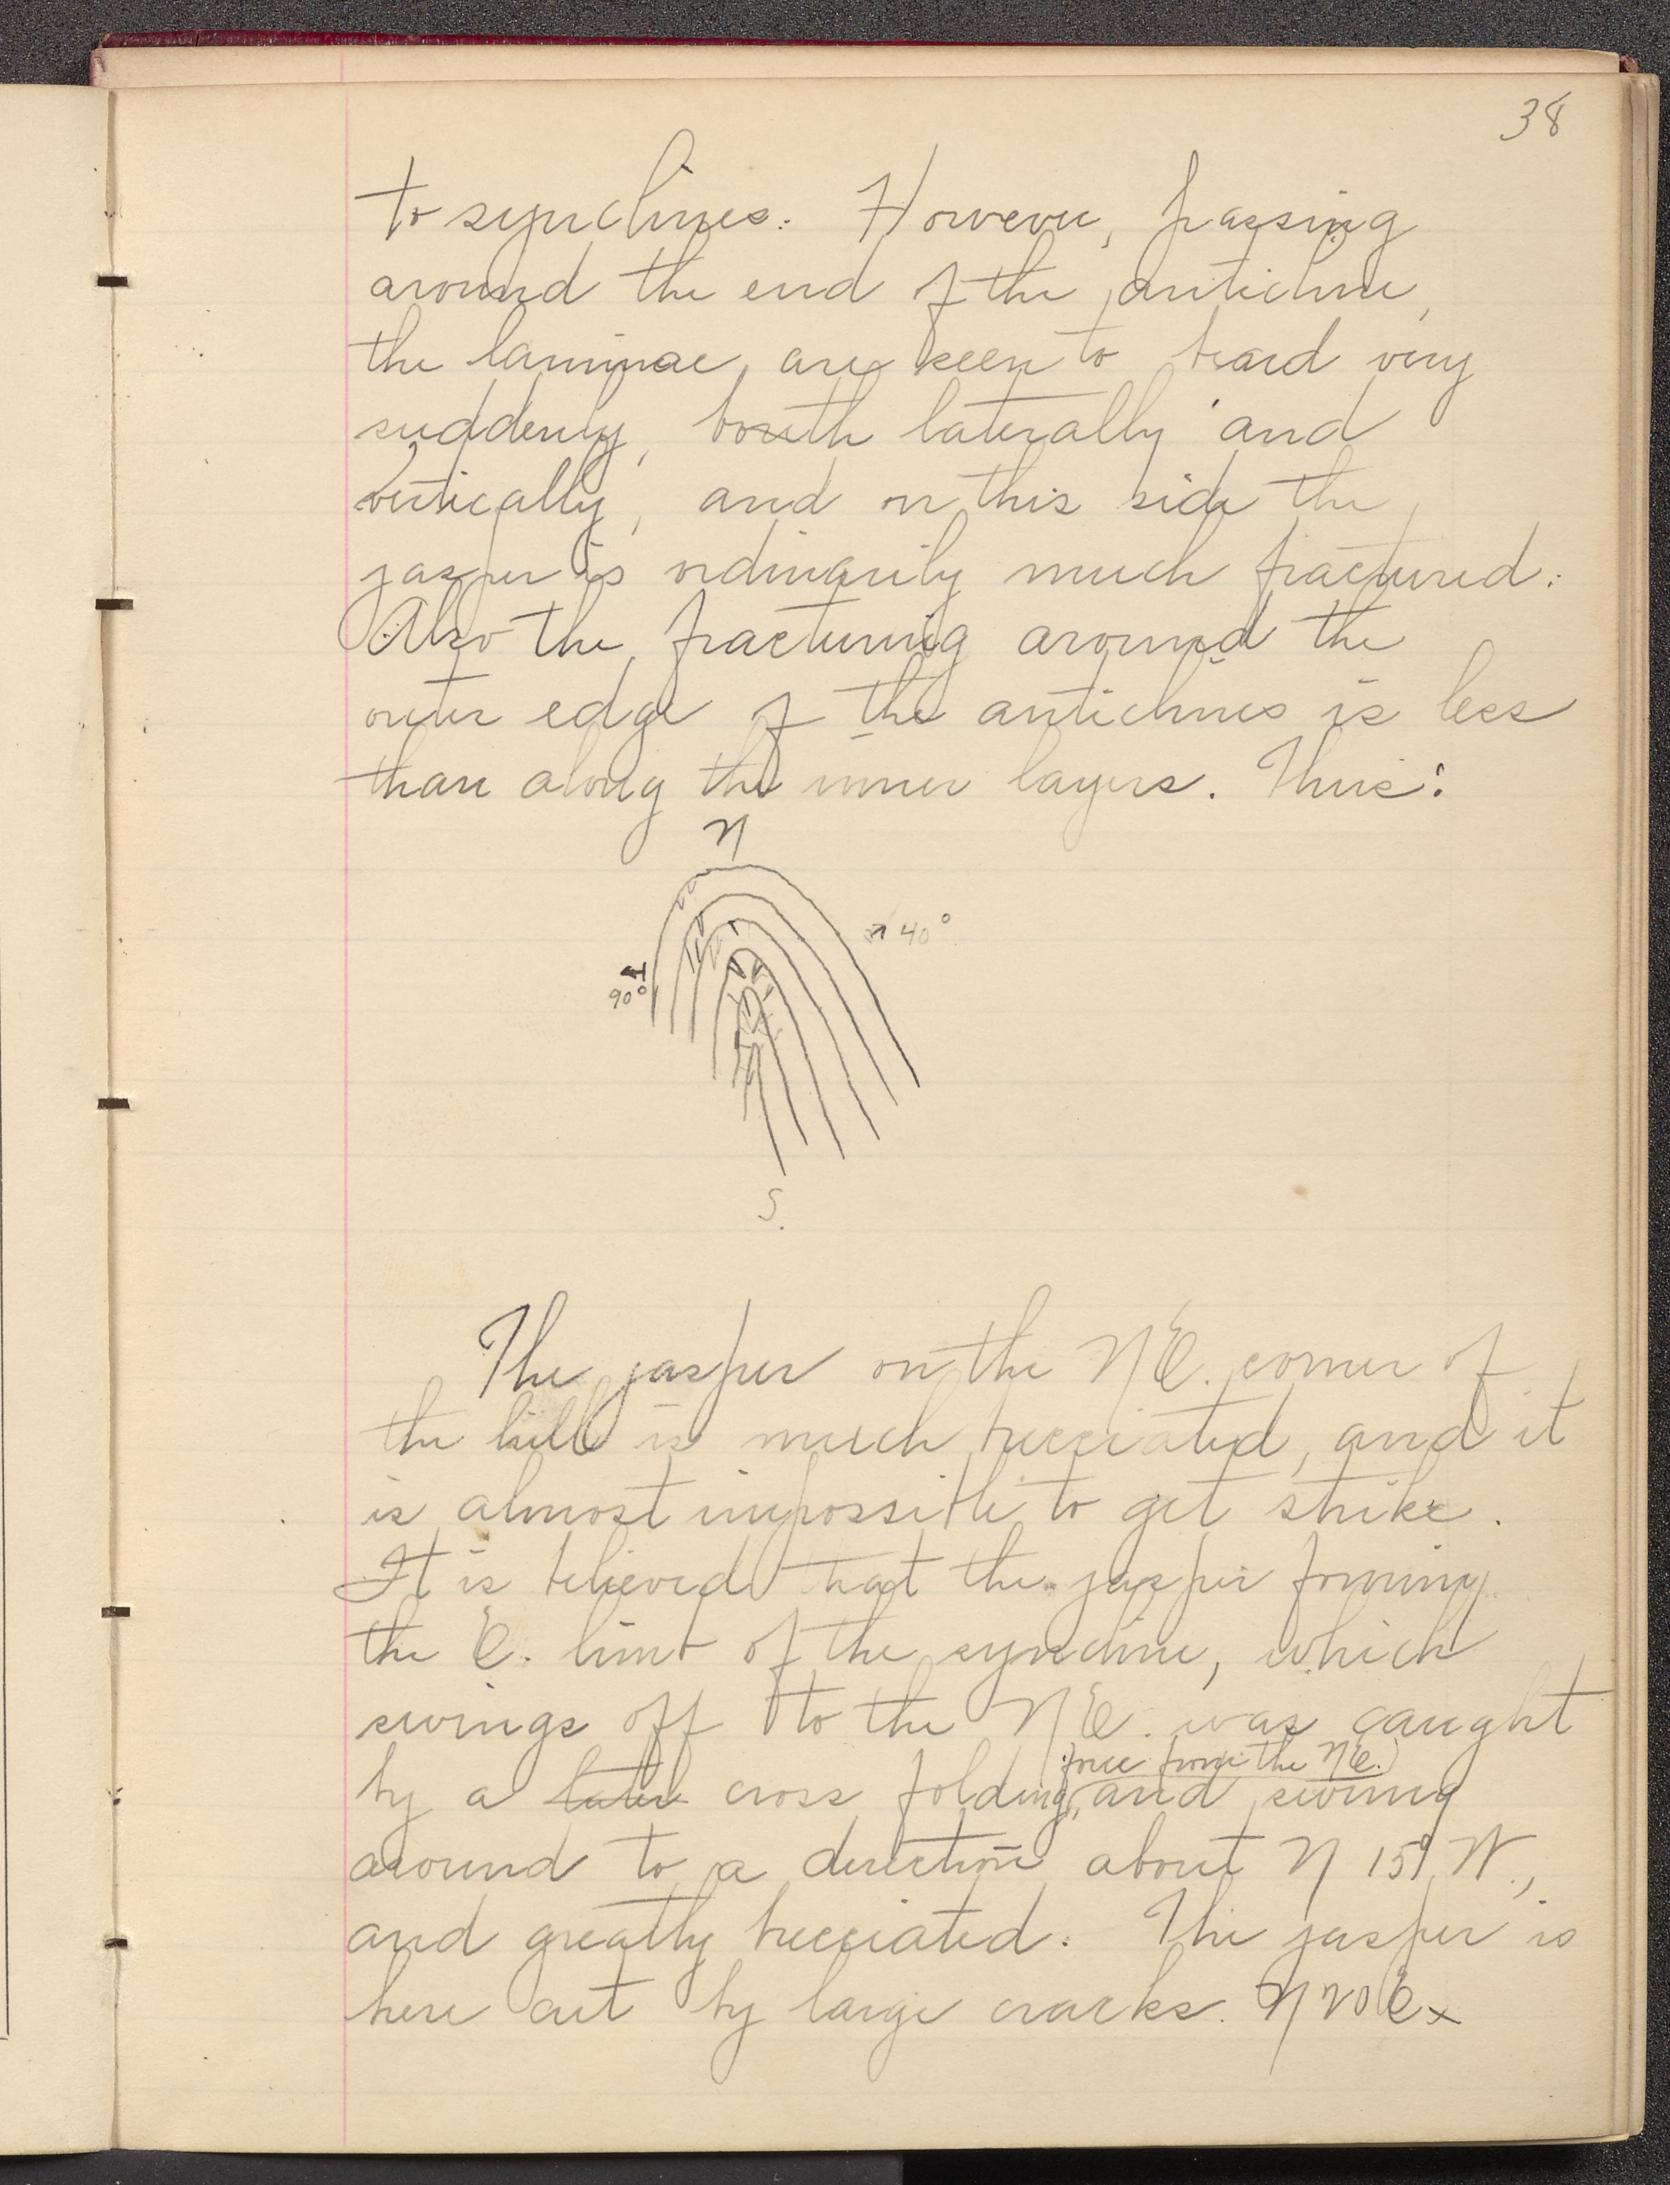 38
to synclines. However, passing
around the end of the anticline,
the laminae are seen to bend very
suddenly, both laterally and
vertically, and on this side the
jasper is ordinarily much fractured.
Also the fracturing around the
outer edge of the anticlines is less
than along the inner layers. Thus:
N
40°
90°
S.
The jasper on the NE. corner of
the hill is much brecciated, and it
is almost impossible to get strike.
It is believed that the jasper forming
the E. limb of the syncline, which
swings off to the NE. was caught
force from the NE.)
by a later cross folding, and swung
around to a direction about N 15° W.,
and greatly brecciated. The jasper is
here cut by large cracks. N 20 E x